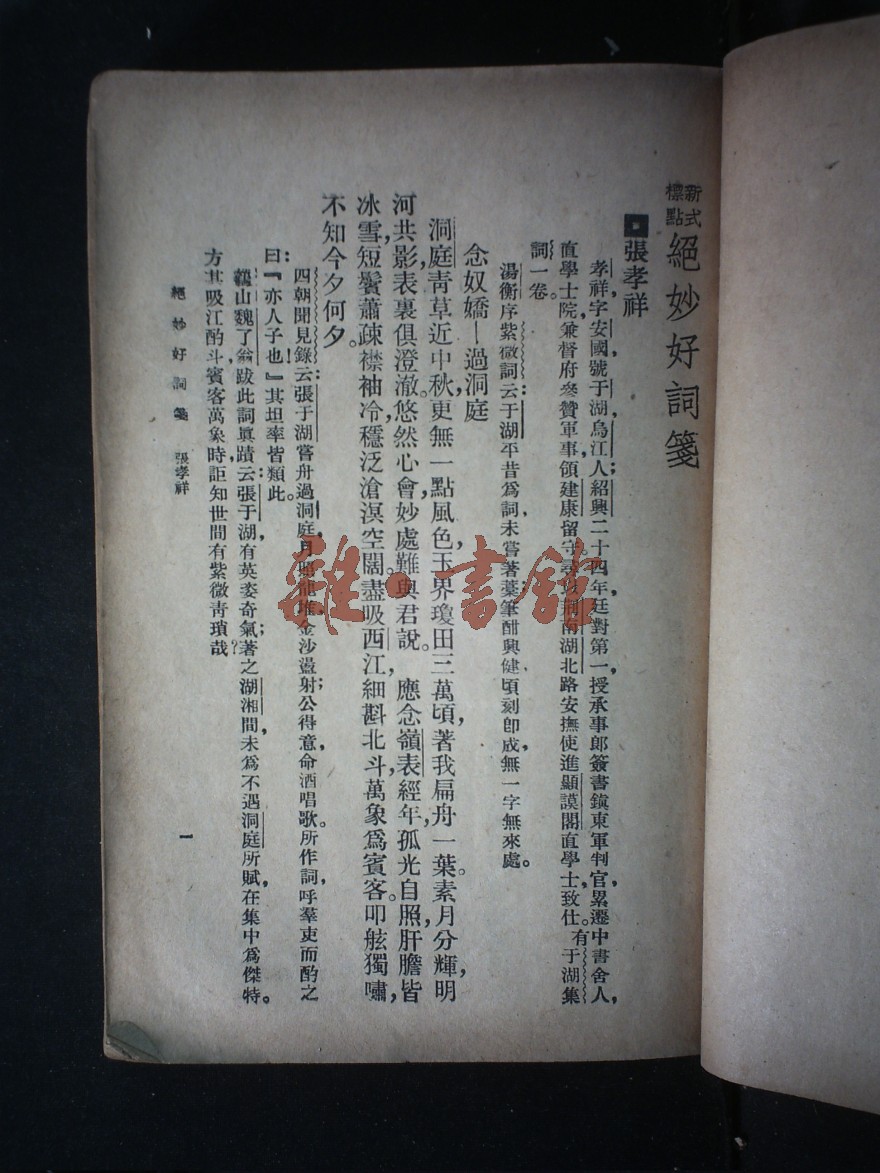 新式標點 絕妙好詞箋
張孝祥
孝祥字安國,號于湖,烏江人,紹興二十四年,廷對第一,授承事郎,簽書鎮東軍判官,累遷中書舍人,
直學士院,兼督府參贊軍事,領建康留守,尋以荆南湖北路安撫使,進顯謨閣直學士,致仕。有于湖集
詞一卷。
湯衡序紫微詞云:于湖平昔爲詞,未嘗著藁,筆酣興健,頃刻卽成,無一字無來處。
念奴嬌—過洞庭
洞庭靑草,近中秋,更無一點風色,玉界瓊田三萬頃,著我扁舟一葉。素月分輝,明
河共影,表裏俱澄澈,悠然心會,妙處難與君說。 應念嶺表經年,孤光自照,肝膽皆
冰雪,短鬢蕭疎襟袖冷,穩泛滄溟空闊,盡吸西江,細斟北斗,萬象爲賓客。叩舷獨嘯,
不知今夕何夕。
四朝聞見錄云:張于湖嘗舟過洞庭,月照龍堆,金沙盪射;公得意命酒唱歌。所作詞,呼羣吏而酌之
曰:『亦人子也!』其坦率皆類此。
鶴山魏了翁跋此詞眞蹟云:張于湖,有英姿奇氣;著之湖湘間,未爲不遇,洞庭所賦,在集中爲傑特。
方其吸江酌斗,賓客萬象時,詎知世間有紫微靑瑣哉?
絕妙好詞箋 張孝祥
一
雜·書館